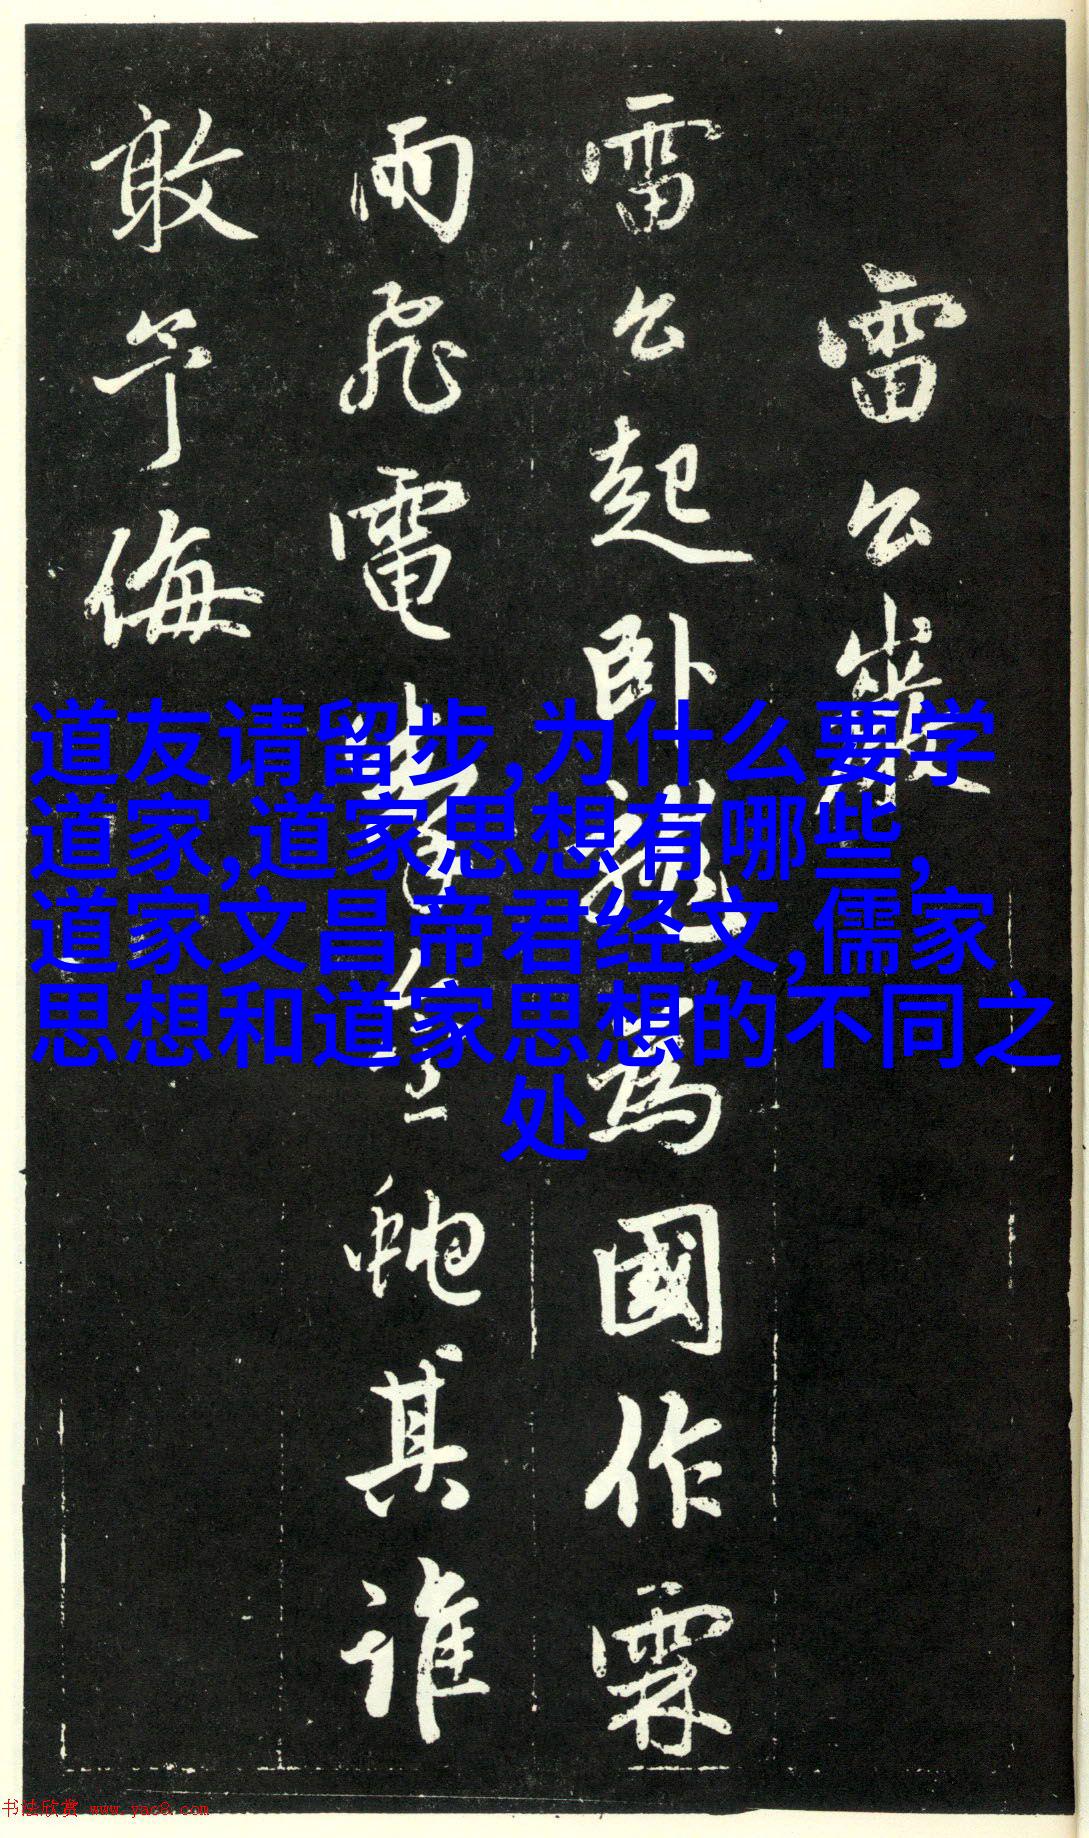 雷公巖
雷公起卧龍為國作霖
雨飛電掣金蛇其誰
敢予侮
道友请留步,为什么要学
道家,道家思想有哪些,
道家文昌帝君经文,儒家
思想和道家思想的不同之
处
书法欣赏 www.yac8.com